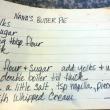 NANA'S BUTTER PIE
lks
Sugar
ng Tbsp Flour
lk
Flour & Sugar add yolks & w
double boiler til thick
a little salt, tsp vanilla, pinc
th Whipped Cream